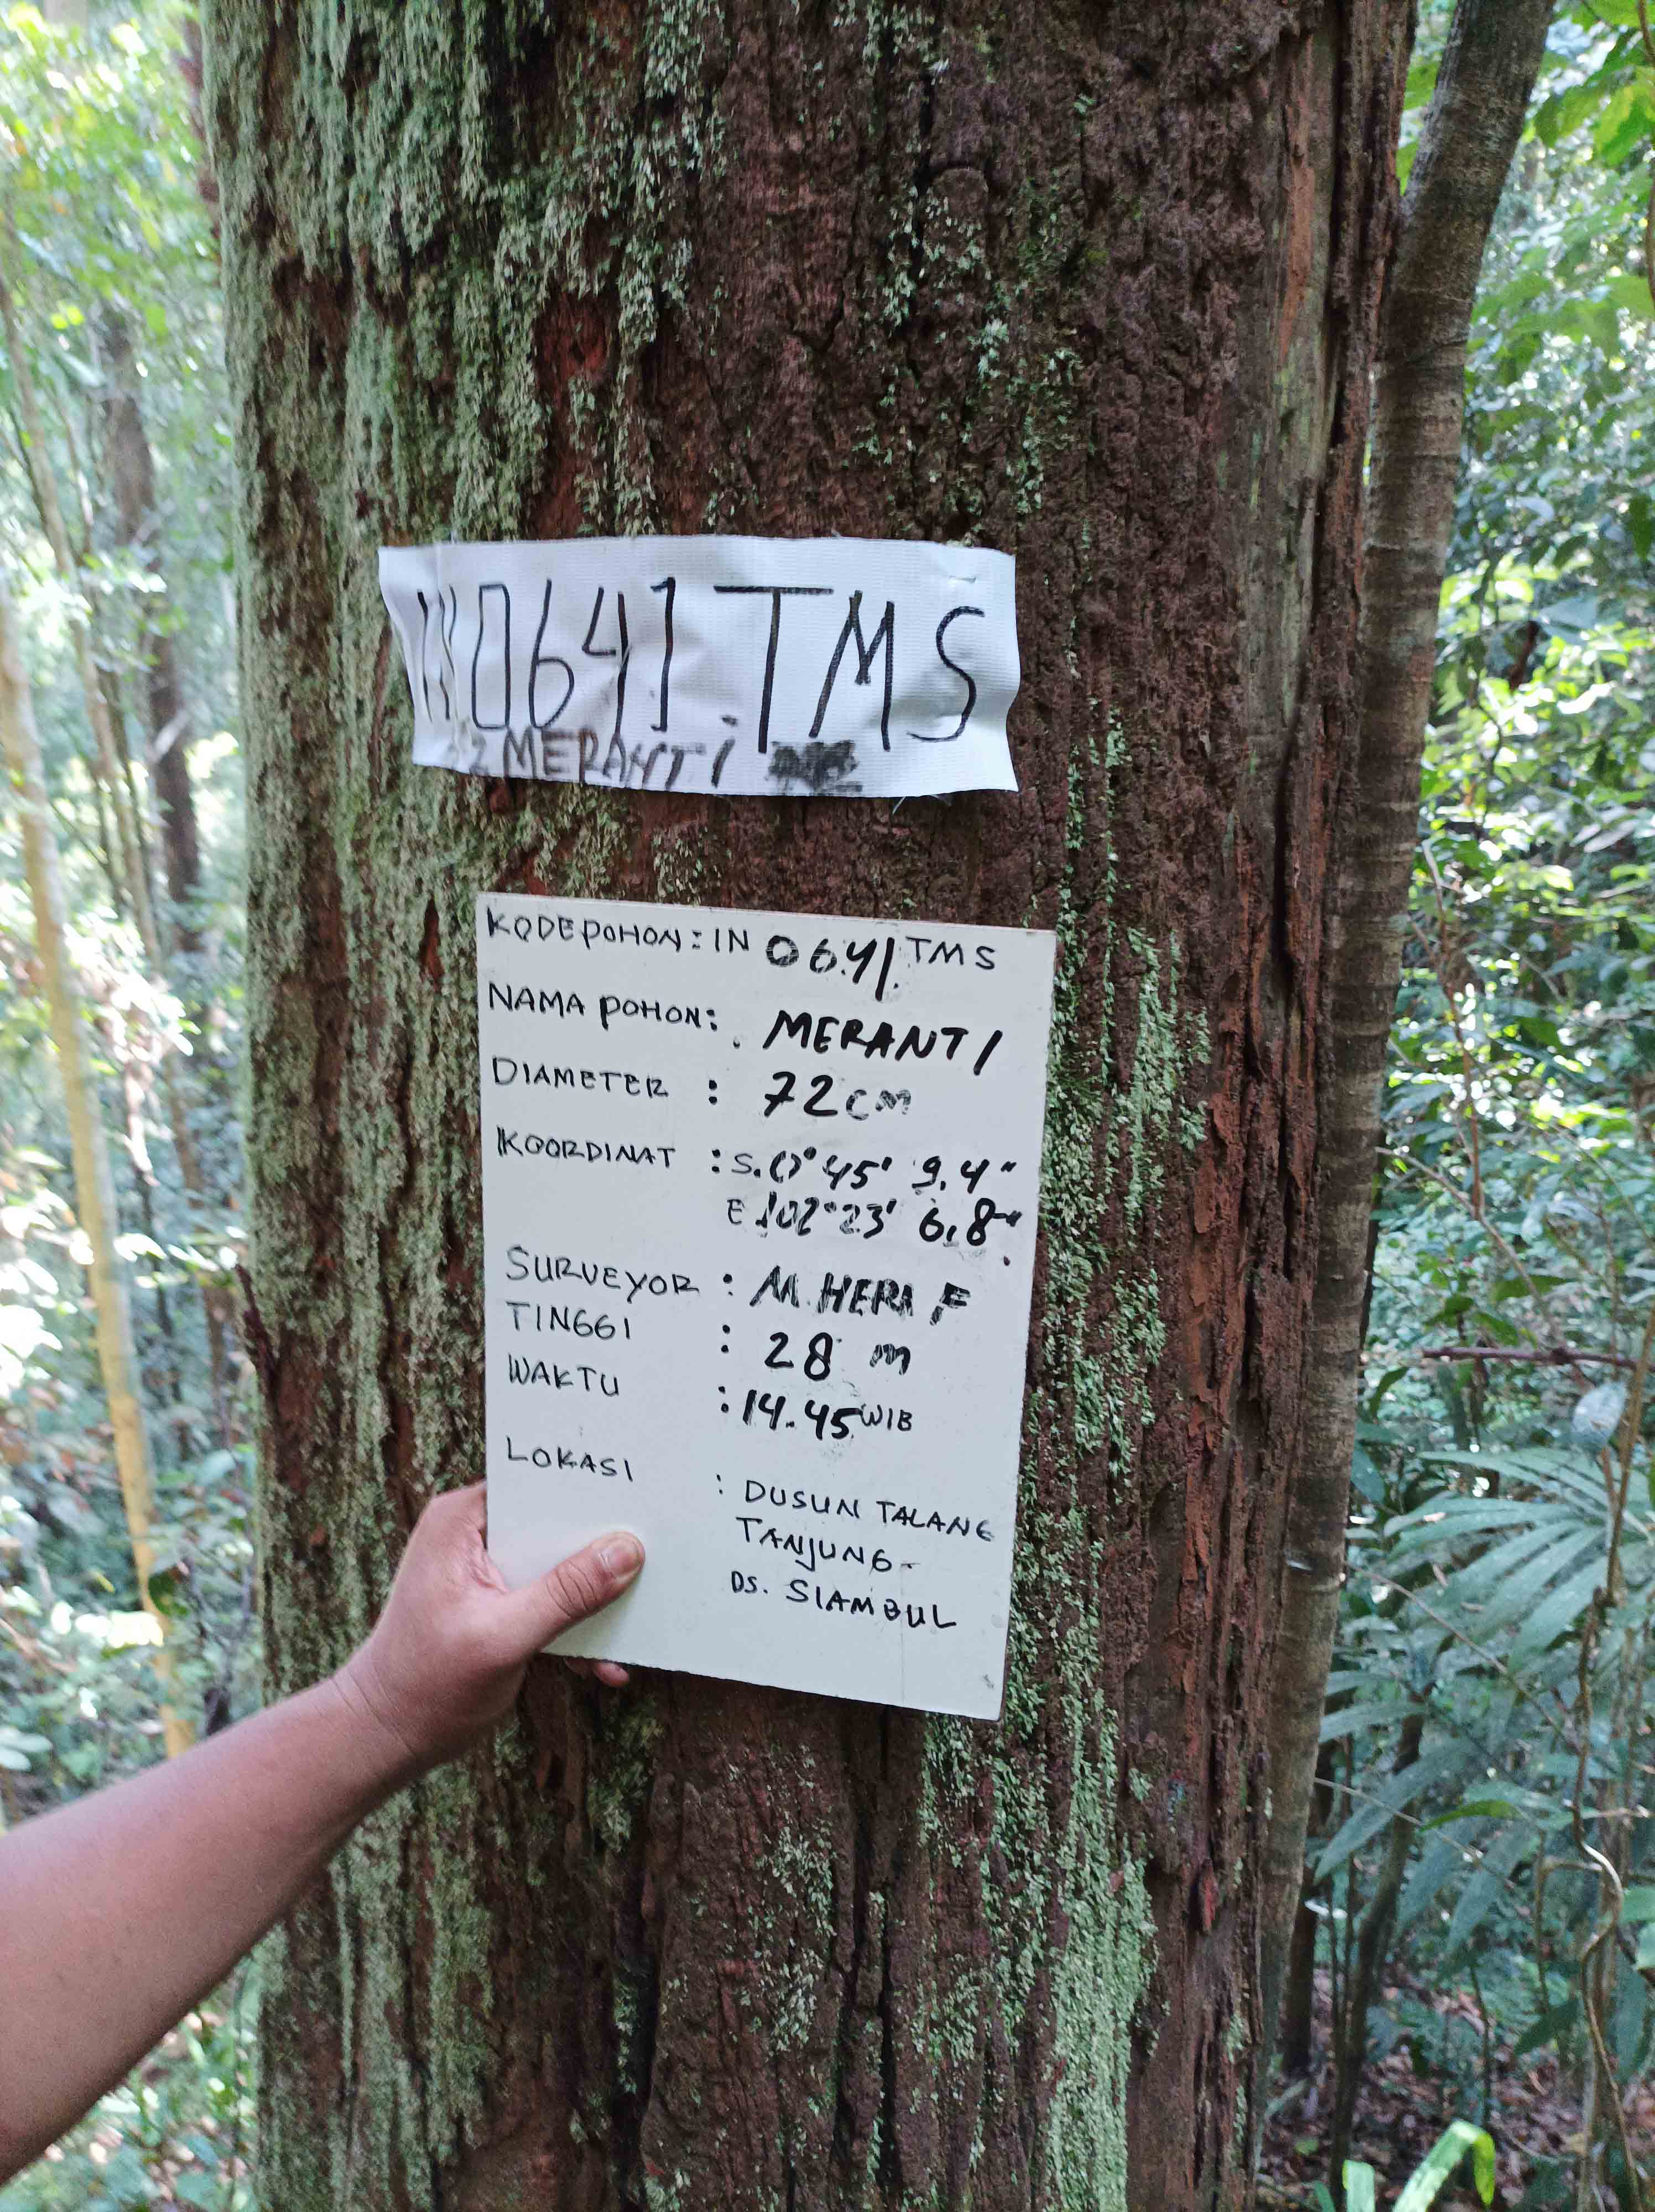 IN0641.TMS
72 MERANTI
KODE POHON : IN 0641.TMS
NAMA POHON : MERANTI
DIAMETER : 72 cm
KOORDINAT : S. 0° 45' 9.4"
E 102° 23' 6.8"
SURVEYOR : M. HERI F
TINGGI : 28 m
WAKTU : 14.45 WIB
LOKASI : DUSUN TALANG
TANJUNG -
DS. SIAMBUL